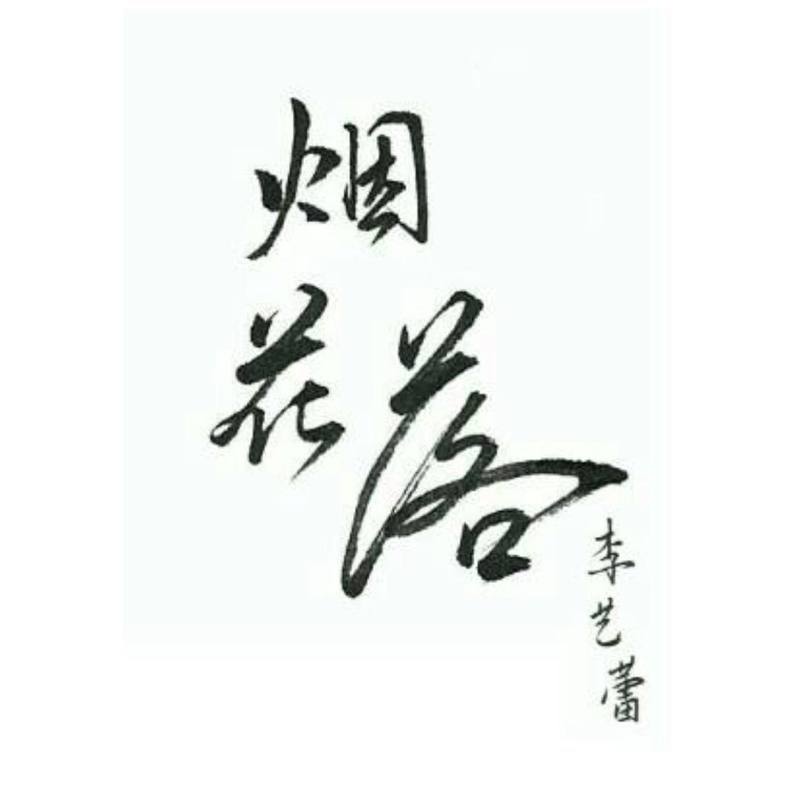 烟
花落
李艺蕾